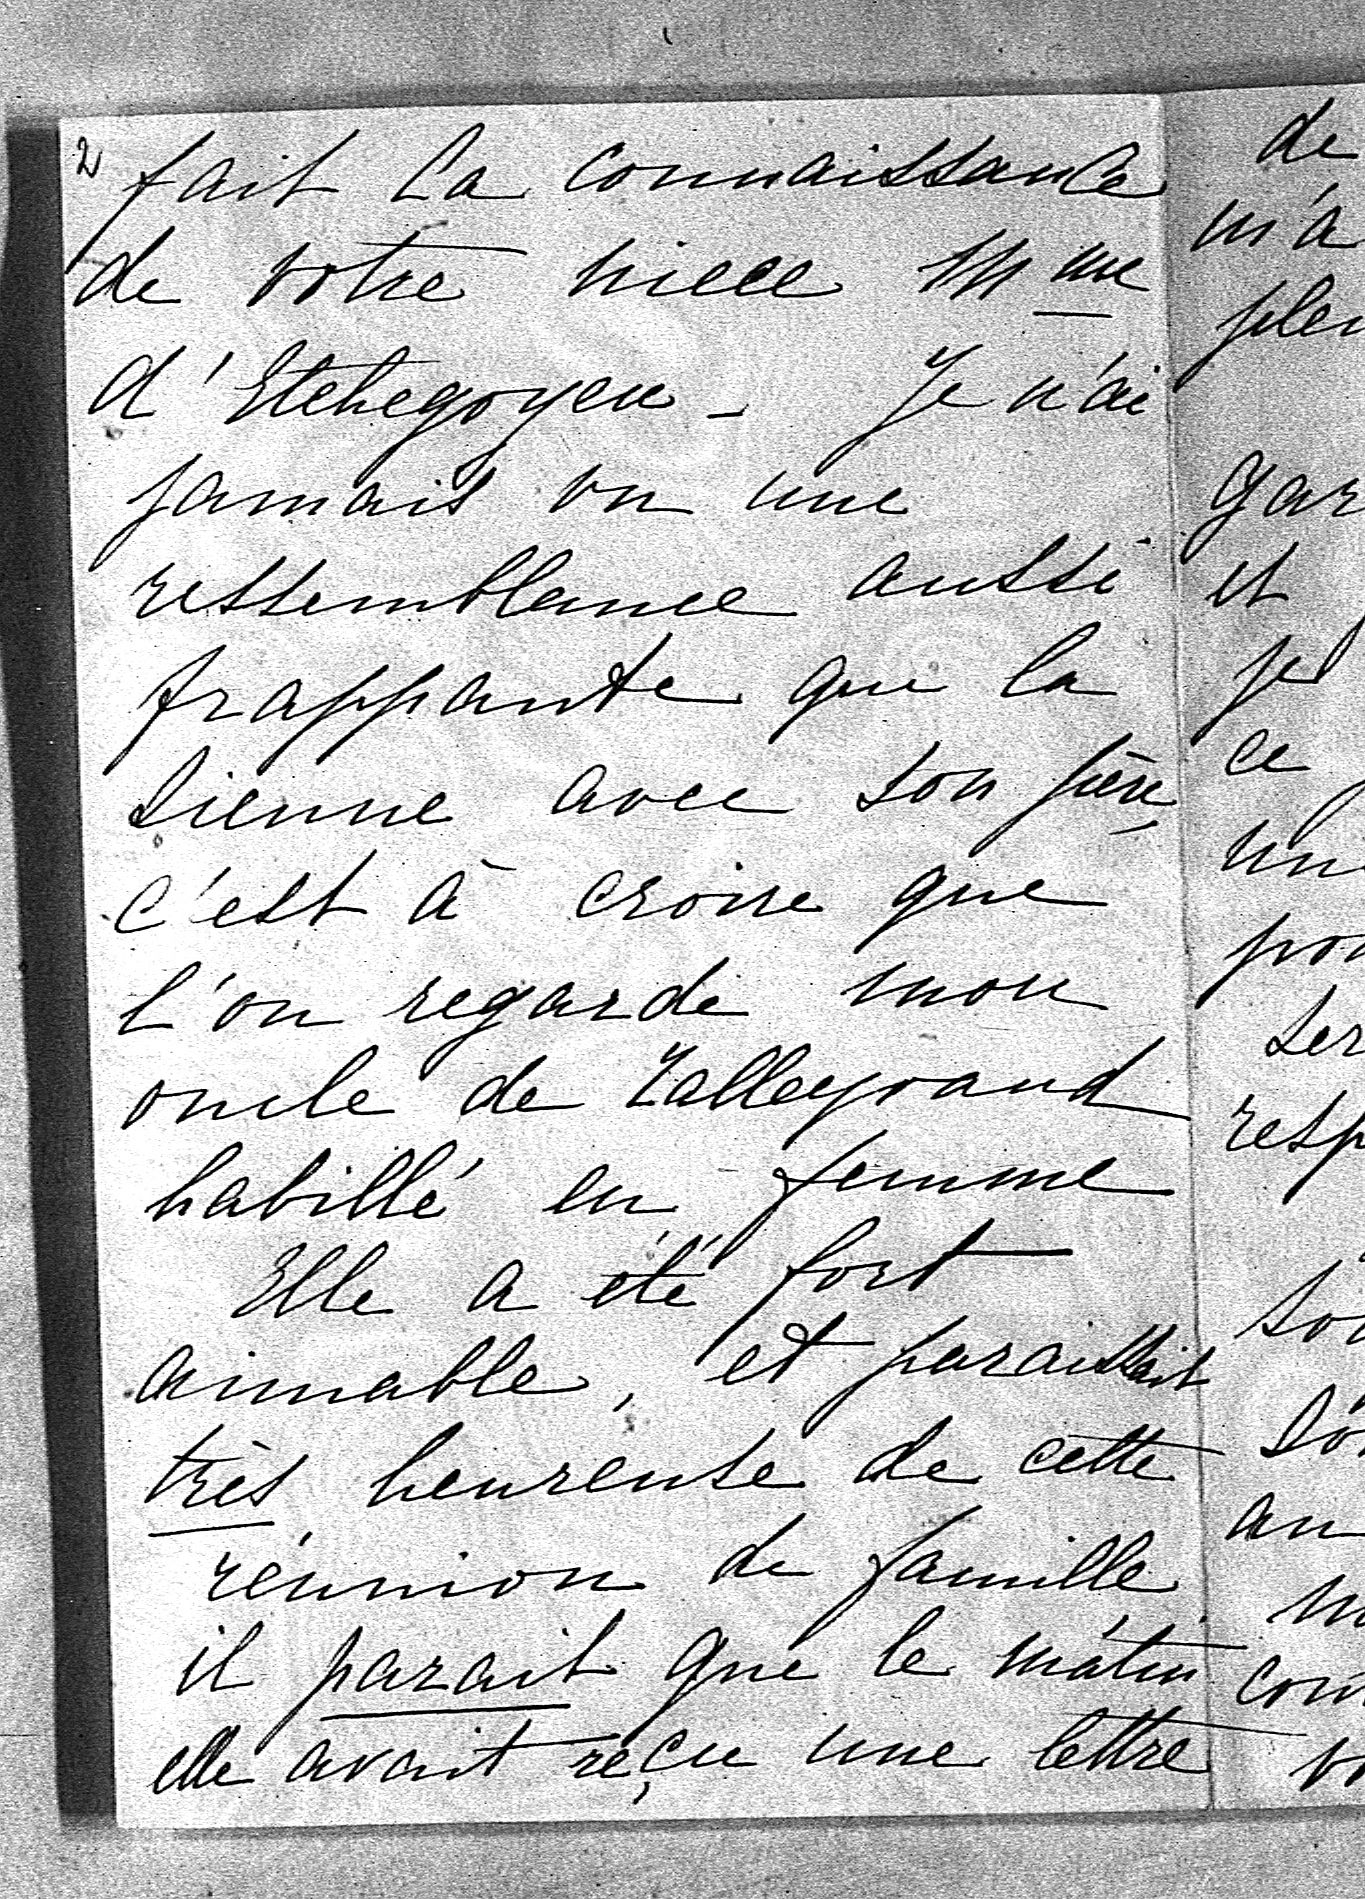 2
fait la connaissance
de votre niece Mme
d'Etchegoyen - Je n'ai
jamais vu une
ressemblance aussi
frappante que la
sienne avec son père,
c'est à croire que
l'on regarde mon
oncle de Talleyrand
habillé en femme
Elle a été fort
aimable, et paraissait
très heureuse de cette
réunion de famille
il parait que le matin
elle avait reçu une lettre
de
m'a
gar
et
je
ce
resp